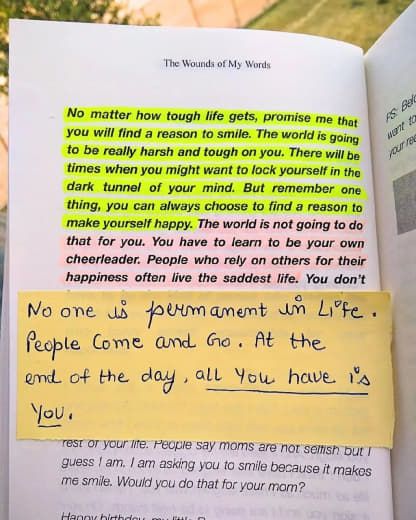 The Wounds of My Words
No matter how tough life gets, promise me that
you will find a reason to smile. The world is going
to be really harsh and tough on you. There will be
times when you might want to lock yourself in the
dark tunnel of your mind. But remember one
thing, you can always choose to find a reason to
make yourself happy. The world is not going to do
that for you. You have to learn to be your own
cheerleader. People who rely on others for their
happiness often live the saddest life. You don't
No one is permanent in Life.
People Come and Go. At the
end of the day, all You have is
You.
rest of your life. People say moms are not selfish but I
guess I am. I am asking you to smile because it makes
me smile. Would you do that for your mom?
Happy birthday
PS:
want to
your